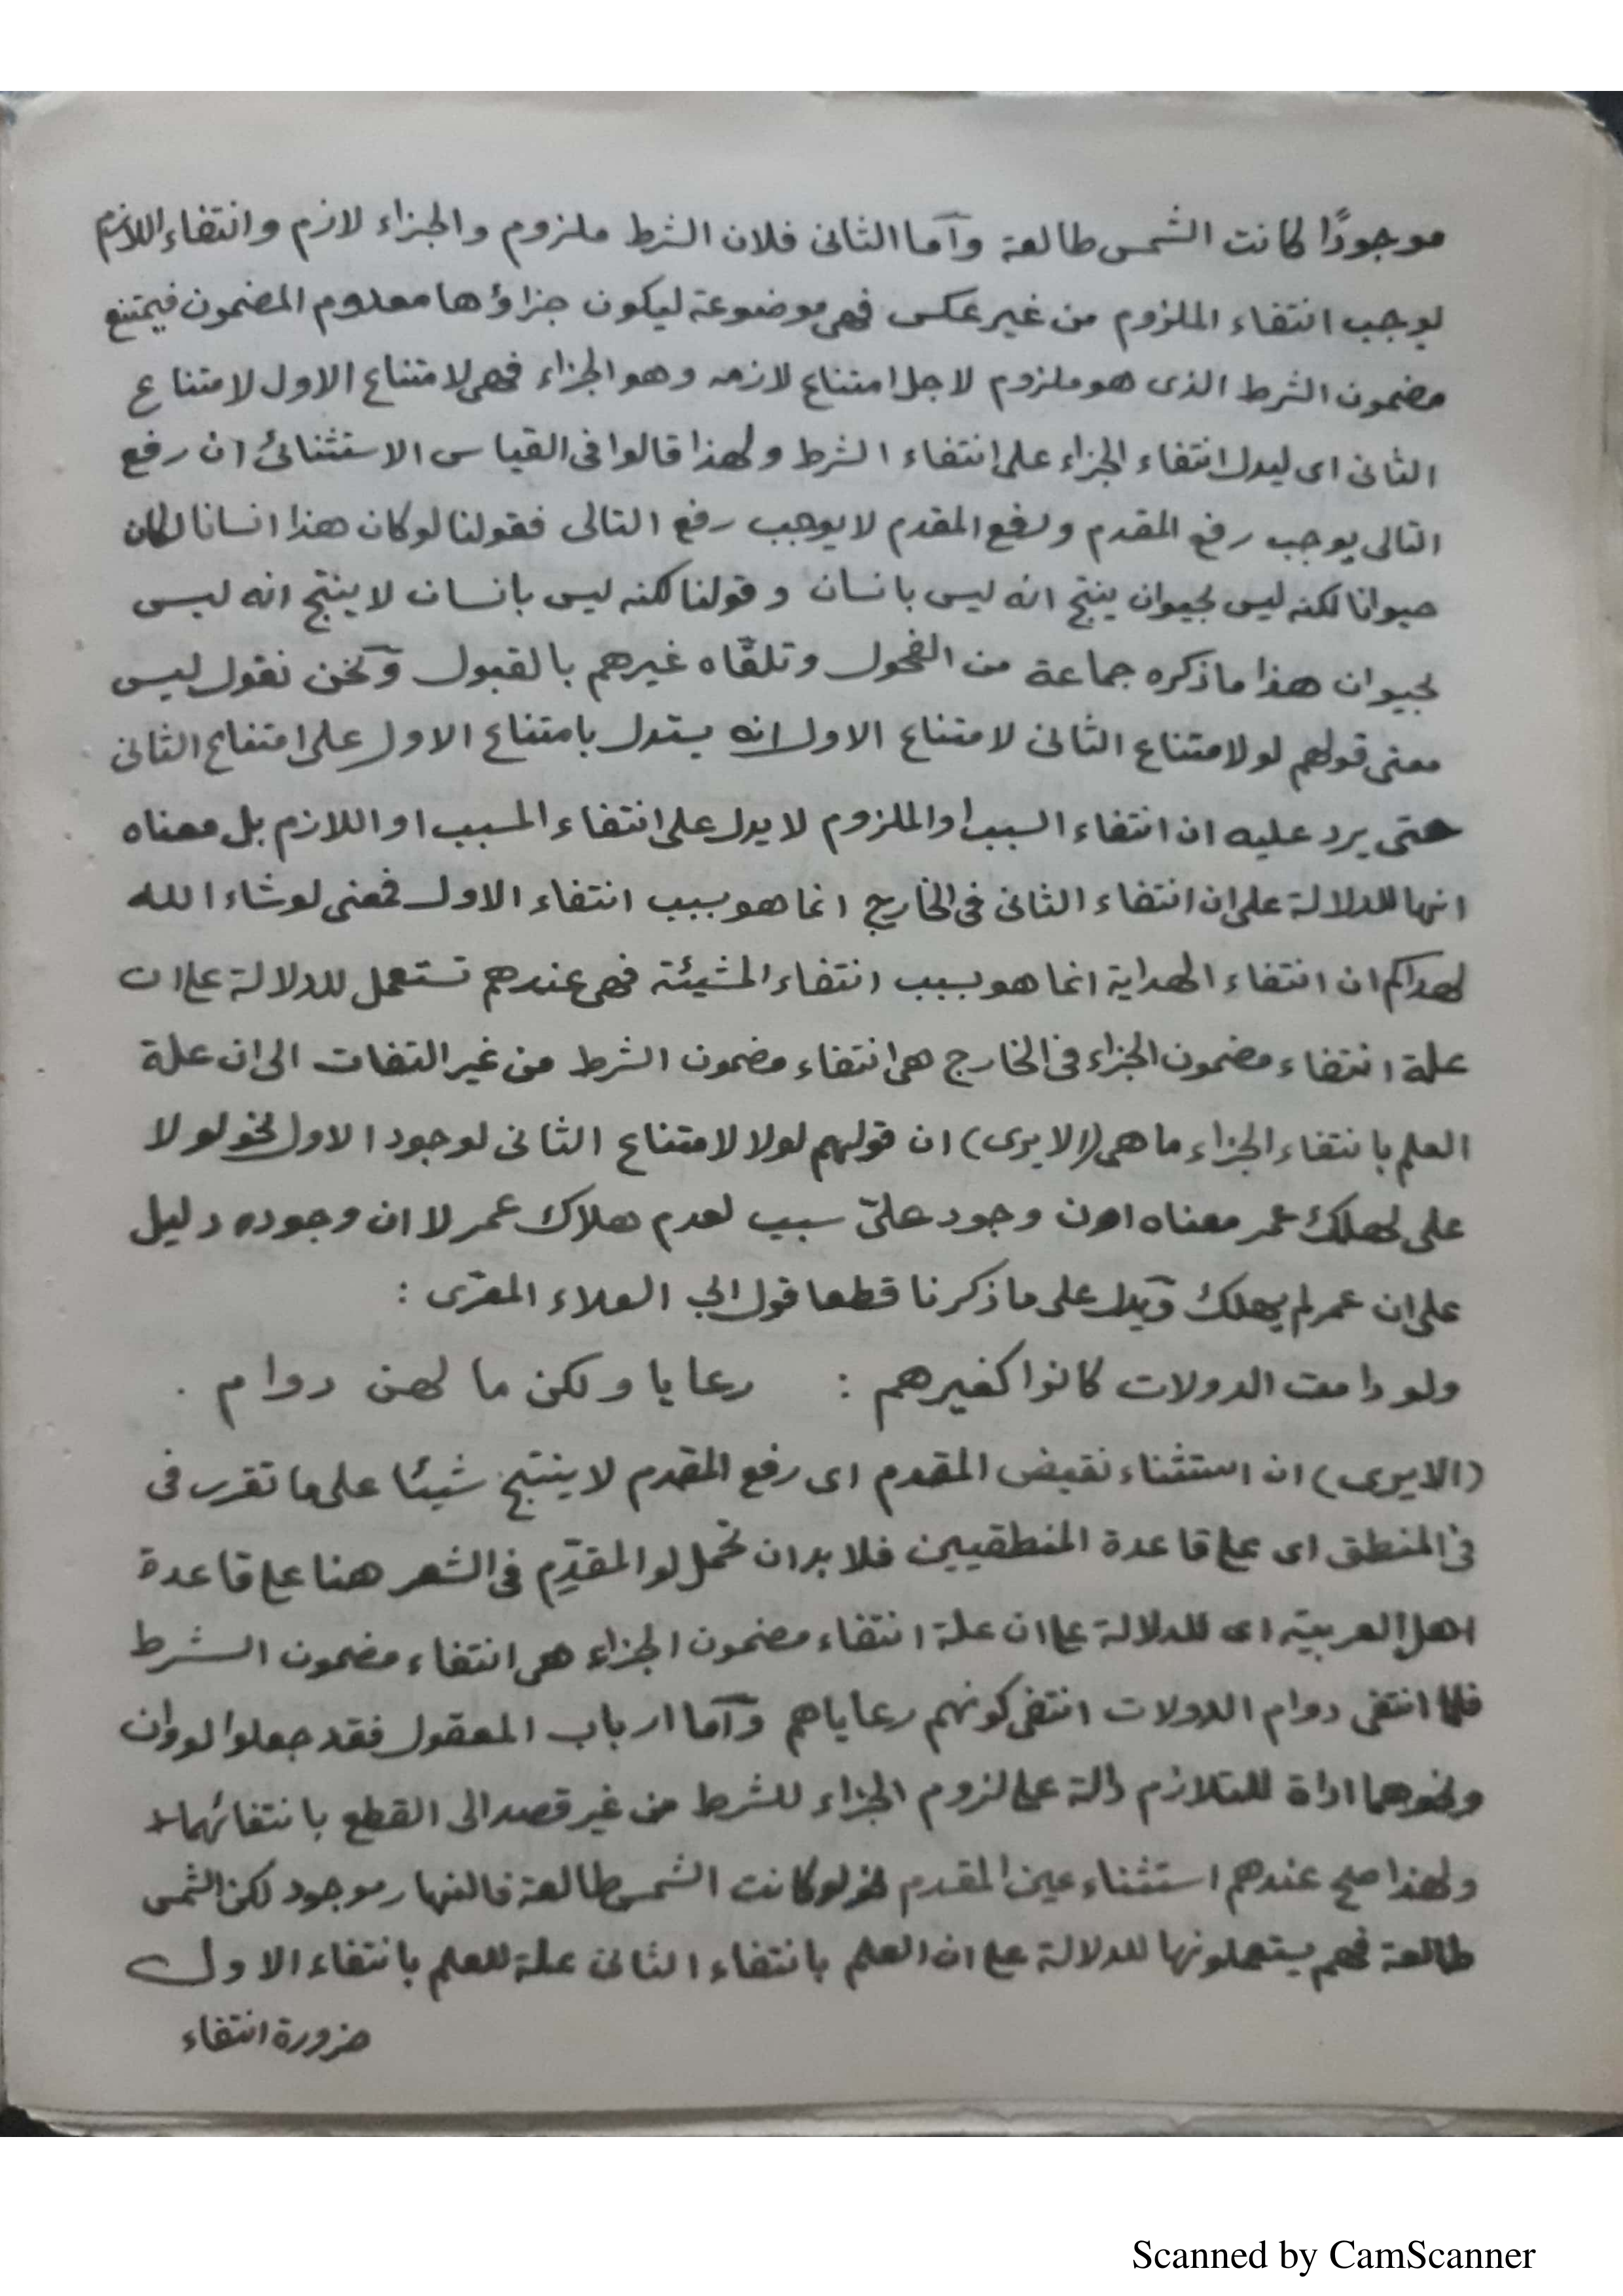 موجودًا كانت الشمس طالعة وآما الثانى فلان الشرط ملزوم والجزاء لازم وانتفاء اللازم
يوجب انتفاء الملزوم من غير عكس فهى موضوعة ليكون جزاؤها معدوم المضمون فيمتنع
مضمون الشرط الذى هو ملزوم لاجل امتناع لازمه وهو الجزاء فهى لامتناع الاول لامتناع
الثانى اى ليدل انتفاء الجزاء على انتفاء الشرط ولهذا قالوا فى القياس الاستثنائ ان رفع
التالى يوجب رفع المقدم ورفع المقدم لا يوجب رفع التالى فقولنا لو كان هذا انسانا لكان
حيوانا لكنه ليس بحيوان ينتج انه ليس بانسان وقولنا لكنه ليس بانسان لا ينتج انه ليس
بحيوان هذا ما ذكره جماعة من الفحول وتلقّاه غيرهم بالقبول وٓنحن نقول ليس
معنى قولهم لو لامتناع الثانى لامتناع الاول انه يستدل بامتناع الاول على امتناع الثانى
حتى يرد عليه ان انتفاء السبب او الملزوم لا يدل على انتفاء المسبب او اللازم بل معناه
انها للدلالة على ان انتفاء الثانى فى الخارج انما هو بسبب انتفاء الاول فمعنى لو شاء الله
لهداكم ان انتفاء الهداية انما هو بسبب انتفاء المشيئة فهى عندهم تستعمل للدلالة على ان
علة انتفاء مضمون الجزاء فى الخارج هى انتفاء مضمون الشرط من غير التفات الى ان علة
العلم بانتفاء الجزاء ما هى (الا يرى) ان قولهم لولا لامتناع الثانى لوجود الاول نحو لولا
على لهلك عمر معناه ان وجود علىّ سبب لعدم هلاك عمر لا ان وجوده دليل
على ان عمر لم يهلك وٓيدل على ما ذكرنا قطعا قول ابى العلاء المعرّى :
ولو دامت الدولات كانوا كغيرهم : رعايا ولكن ما لهن دوام .
(الا يرى) ان استثناء نقيض المقدم اى رفع المقدم لا ينتج شيئا على ما تقرر فى
فى المنطق اى على قاعدة المنطقيين فلا بد ان تحمل لو المقدّم فى الشعر هنا على قاعدة
اهل العربية اى للدلالة على ان علة انتفاء مضمون الجزاء هى انتفاء مضمون الشرط
فلما انتفى دوام الدولات انتفى كونهم رعاياهم وٓآما ارباب المعقول فقد جعلوا لو وان
ونحوهما اداة للتلازم دالة على لزوم الجزاء للشرط من غير قصد الى القطع بانتفائهما
ولهذا صح عندهم استثناء عين المقدم نحو لو كانت الشمس طالعة فالنهار موجود لكن الشمس
طالعة فهم يستعملونها للدلالة على ان العلم بانتفاء الثانى علة للعلم بانتفاء الاول
ضرورة انتفاء
Scanned by CamScanner